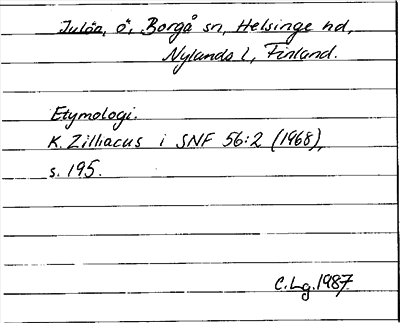 Julöa, ö, Borgå sn, Helsinge hd,
Nylands l, Finland.
Etymologi.
K. Zilliacus i SNF 56:2 (1968),
s. 195.
C.Lg.1987